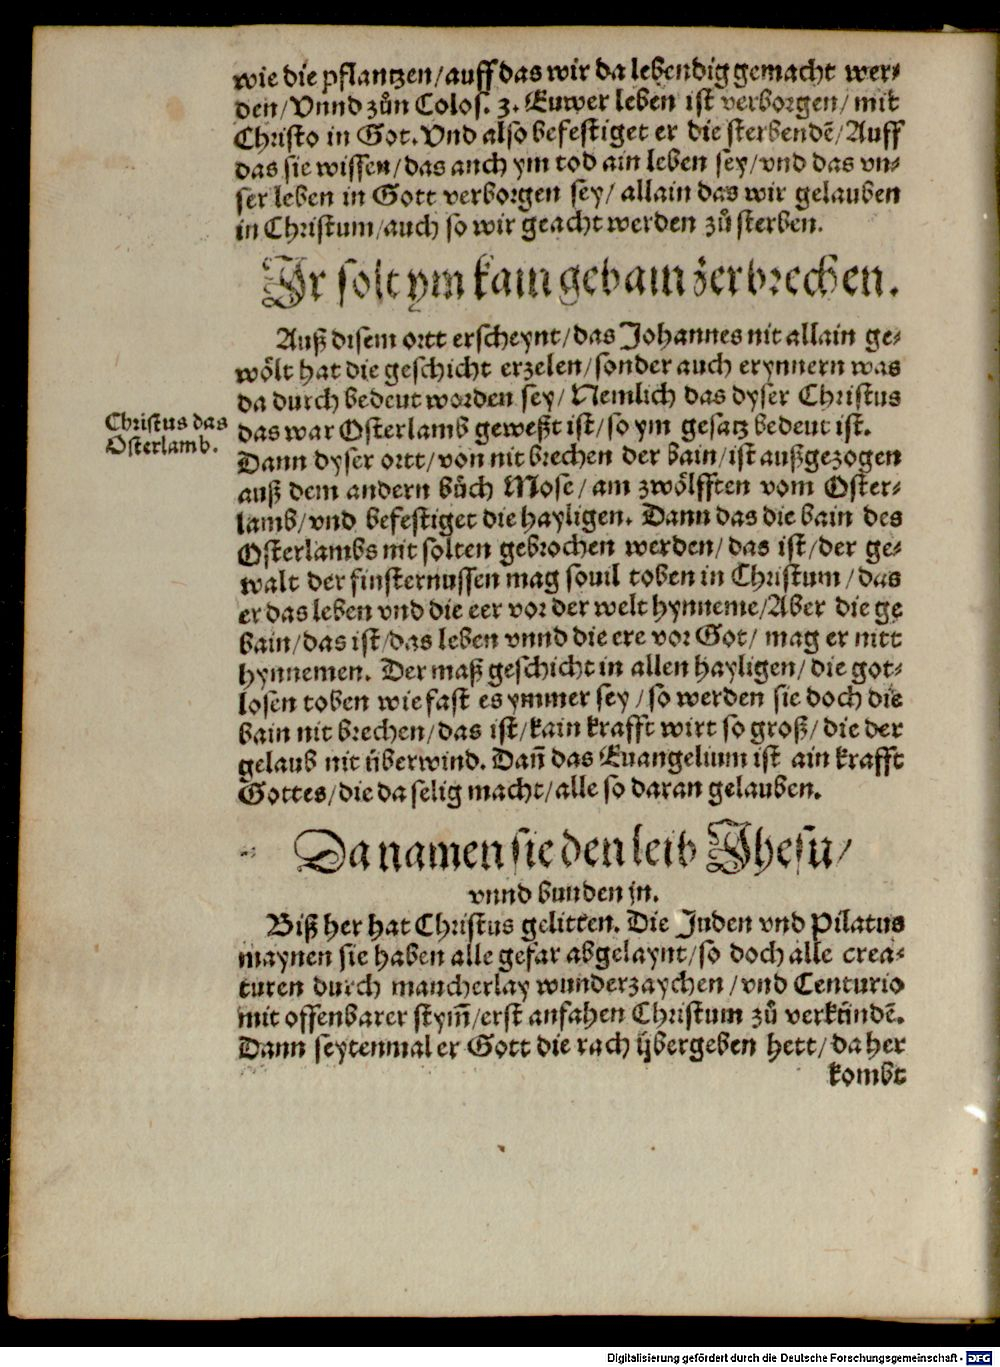 wie die pflantzen/auff das wir da lebendig gemacht wer-
den/Vnnd zůn Colos. 3. Euwer leben ist verborgen/ mit
Christo in Got. Vnd also befestiget er die sterbendẽ/Auff
das sie wissen/das auch ym tod ain leben sey/vnd das vn-
ser leben in Gott verborgen sey/ allain das wir gelauben
in Christum/auch so wir geacht werden zů sterben.
Jr solt ym kain gebain zerbrechen.
Auß disem ortt erscheynt/das Johannes nit allain ge-
wölt hat die geschicht erzelen/sonder auch erynnern was
da durch bedeut worden sey/ Nemlich das dyser Christus
Christus das
Osterlamb.
das war Osterlamb geweßt ist/so ym gesatz bedeut ist.
Dann dyser ortt/von nit brechen der bain/ist außgezogen
auß dem andern bůch Mose/am zwölfften vom Oster-
lamb/vnd befestiget die hayligen. Dann das die bain des
Osterlambs nit solten gebrochen werden/das ist/der ge-
walt der finsternussen mag souil toben in Christum/das
er das leben vnd die eer vor der welt hynneme/Aber die ge
bain/das ist/das leben vnnd die ere vor Got/ mag er nitt
hynnemen. Der maß geschicht in allen hayligen/die got-
losen toben wie fast es ymmer sey/so werden sie doch die
bain nit brechen/das ist/kain krafft wirt so groß/die der
gelaub nit überwind. Dañ das Euangelium ist ain krafft
Gottes/die da selig macht/alle so daran gelauben.
Da namen sie den leib Jhesu/
vnnd bunden jn.
Biß her hat Christus gelitten. Die Juden vnd Pilatus
maynen sie haben alle gefar abgelaynt/so doch alle crea-
turen durch mancherlay wunderzaychen/vnd Centurio
mit offenbarer stym̃/erst anfahen Christum zů verkündẽ.
Dann seytenmal er Gott die rach übergeben hett/da her
kombt
Digitalisierung gefördert durch die Deutsche Forschungsgemeinschaft - DFG